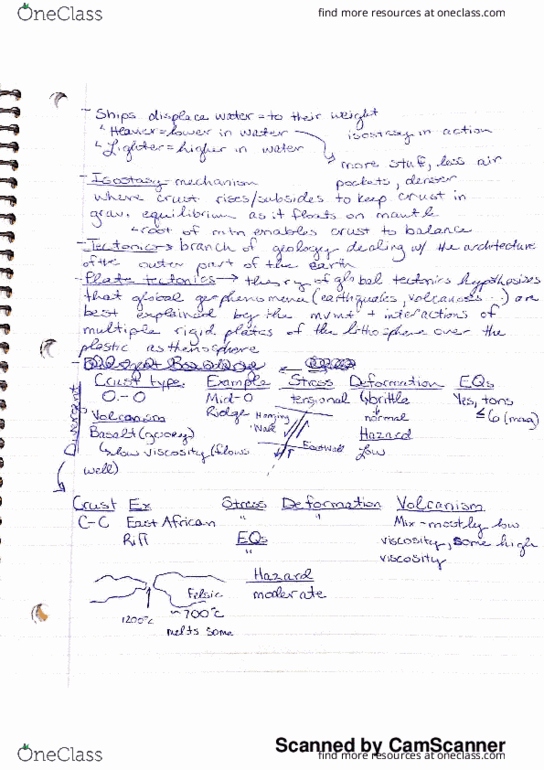 OneClass
find more resources at oneclass.com
- Ships displace water = to their weight
↳ Heavier = lower in water
isostasy in action
↳ Lighter = higher in water
more stuff, less air
pockets, denser
- Isostasy - mechanism
where crust rises/subsides to keep crust in
grav. equilibrium as it floats on mantle
↳ root of mtn enables crust to balance
- Tectonics - branch of geology dealing w/ the architecture
of the outer part of the earth
- Plate tectonics → theory of global tectonics hypothesizes
that global geophenomena (earthquakes, volcanoes...) are
best explained by the mvmt + interactions of
multiple rigid plates of the lithosphere over the
plastic asthenosphere
Divergent
Crust type Example Stress Deformation EQs
O.-O Mid-O tensional brittle Yes, tons
Ridge normal ≤6 (mag)
Volcanism Hanging Wall Footwall Hazard
Basalt (gooey) low
↳ low viscosity (flows
well)
Crust Ex Stress Deformation Volcanism
C-C East African " " Mix - mostly low
Rift EQs viscosity, some high
" viscosity
Hazard
Felsic moderate
1200°C ~700°C
melts some
Scanned by CamScanner
OneClass
find more resources at oneclass.com